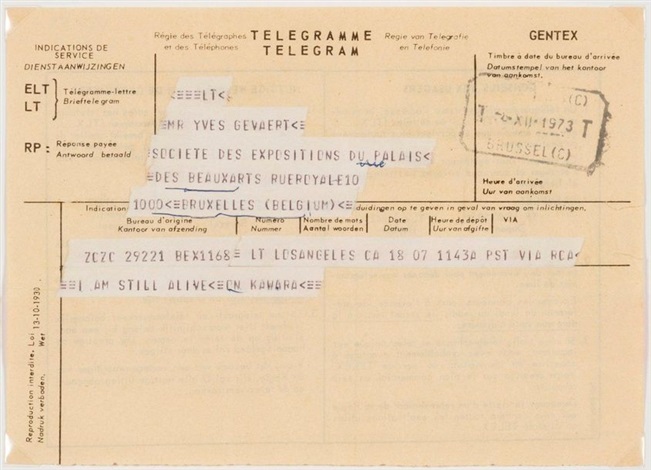 INDICATIONS DE
SERVICE
DIENSTAANWIJZINGEN
Régie des Télégraphes
et des Téléphones
TELEGRAMME
TELEGRAM
Regie van Telegrafie
en Telefonie
GENTEX
Timbre à date du bureau d'arrivée
Datumstempel van het kantoor
van aankomst.
ELT
LT
Télégramme-lettre
Brieftelegram
RP: Réponse payée
Antwoord betaald
(C)
T -6-XII-1973 T
BRUSSEL(C)
Heure d'arrivée
Uur van aankomst
<≡≡≡LT<
MR YVES GEVAERT<≡
SOCIETE DES EXPOSITIONS DU PALAIS<
≡DES BEAUXARTS RUEROYALE10
1000<≡BRUXELLES (BELGIUM)<≡
Indication
duidingen op te geven in geval van vraag om inlichtingen.
Bureau d'origine
Kantoor van afzending
Numéro
Nummer
Nombre de mots
Aantal woorden
Date
Datum
Heure de dépôt
Uur van afgifte
VIA
ZCZC 29221 BEX1168≡ LT LOSANGELES CA 18 07 1143A PST VIA RCA<
≡≡I AM STILL ALIVE<≡ON KAWARA<≡≡
Reproduction interdite. Loi 13-10-1930.
Nadruk verboden. Wet